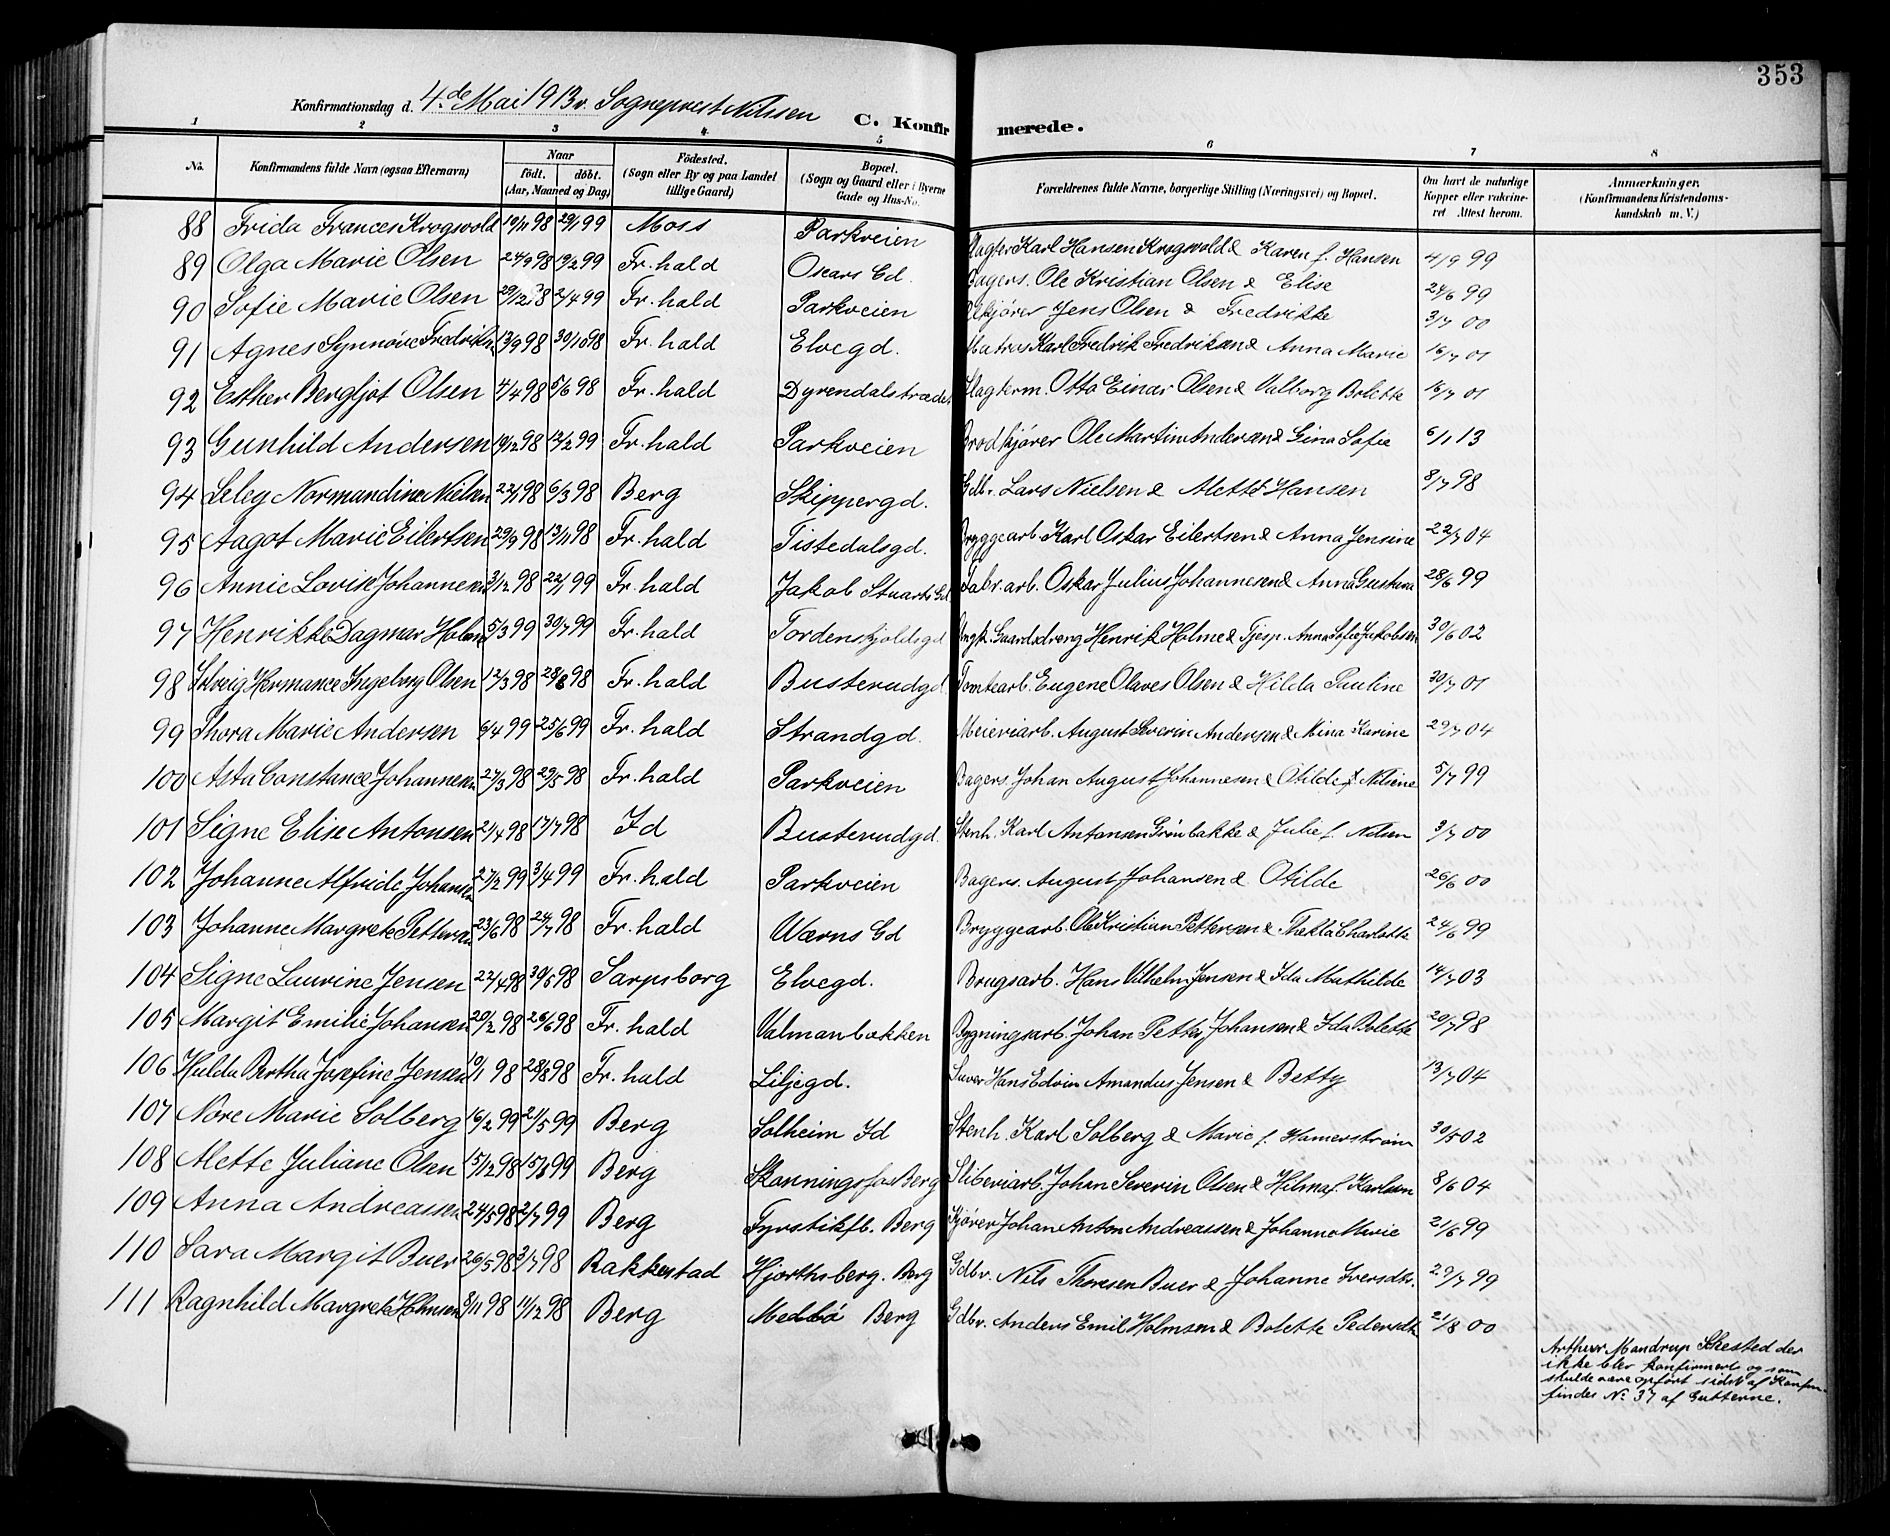 353
Konfirmationsdag d. 4.de Mai 1913 v. Sogneprest Nilssen
C. Konfirmerede.
1 2 3 4. 5 6 7 8
No. Konfirmandens fulde Navn (ogsaa Efternavn) Naar födt. döbt. (Aar, Maaned og Dag) Födested. (Sogn eller By og paa Landet tillige Gaard) Bopæl. (Sogn og Gaard eller i Byerne Gade og Hus-No. Forældrenes fulde Navne, borgerlige Stilling (Næringsvei) og Bopæl. Om havt de naturlige Kopper eller vakcineret Attest herom. Anmærkninger. (Konfirmandens Kristendomskundskab m. V.)
88 Frida Frances Krogsvold 19/11 98 29/1 99 Moss Parkveien Slagter Karl Hansen Krogsvold & Karen f. Hansen 4/9 99
89 Olga Marie Olsen 24/9 98 19/2 99 Fr.hald Oscars Gd. Bagers. Ole Kristian Olsen & Elise 24/6 99
90 Sofie Marie Olsen 29/12 98 2/4 99 Fr.hald Parkveien Jens Olsen & Fredrikke 3/7 00
91 Agnes Synnöve Fredriksen 13/9 98 30/10 98 Fr.hald Elvegd. Matros Karl Fredrik Fredriksen & Anna Marie 16/7 01
92 Esther Bergljot Olsen 4/4 98 5/6 98 Fr.hald Dyrendalstrædet Slagterm. Otto Einar Olsen & Valborg Bolette 16/7 01
93 Gunhild Andersen 19/12 98 12/2 99 Fr.hald Parkveien Brodkjører Ole Martin Andersen & Gina Sofie 6/1 13
94 Seleg Normandine Nielsen 22/1 98 6/3 98 Berg Skippergd. Gdbr. Lars Nielsen & Alette Hansen 8/7 98
95 Aagot Marie Eilertsen 29/9 98 13/11 98 Fr.hald Tistedalsgd. Bryggearb. Karl Oskar Eilertsen & Anna Jensine 22/7 04
96 Annie Lovise Johannesen 3/12 98 22/1 99 Fr.hald Jakob Stuarts Gd Fabr.arb. Oskar Julius Johannesen & Anna Gustava 28/6 99
97 Henrikke Dagmar Holme 5/3 99 30/7 99 Fr.hald Tordenskjoldsgd Ungk. Gaardsdreng Henrik Holme & Tjesp. Anna Sofie Jakobsen 30/6 02
98 Solveig Hermance Ingeborg Olsen 12/3 98 28/8 98 Fr.hald Busterudgd Tomtearb. Eugene Olaves Olsen & Hilda Pauline 30/7 01
99 Thora Marie Andersen 6/4 99 25/6 99 Fr.hald Strandgd. Meieriarb. August Severin Andersen & Mina Karine 29/7 04
100 Asta Constance Johannesen 27/3 98 29/5 98 Fr.hald Parkveien Bagers. Johan August Johannesen & Otilde f. Nilsine 5/7 99
101 Signe Elise Antonsen 21/4 98 17/7 98 Id Busterudgd. Stenh. Karl Antonsen Grönbakke & Julie f. Nilsen 3/7 00
102 Johanne Alfride Johansen 27/2 99 3/4 99 Fr.hald Parkveien Bagers. August Johansen & Otilde 26/6 00
103 Johanne Margrete Pettersen 23/6 98 24/7 98 Fr.hald Værns Gd Bryggearb. Ole Kristian Pettersen & Thekla Charlotte 24/6 99
104 Signe Laurine Jensen 22/4 98 30/5 98 Sarpsborg Elvegd. Brugsarb. Hans Vilhelm Jensen & Ida Mathilde 14/7 03
105 Margit Emilie Johansen 20/2 98 26/6 98 Fr.hald Valmanbækken Bygningsarb. Johan Petter Johansen & Ida Bolette 20/7 98
106 Hulda Bertha Josefine Jensen 10/1 98 28/8 98 Fr.hald Liljegd. Hans Edvin Amandus Jensen & Betty 13/7 04
107 Nore Marie Solberg 16/2 99 21/5 99 Berg Solheim Id Stenh. Karl Solberg & Marie f. Hamerström 30/5 02
108 Alette Juliane Olsen 15/12 98 15/8 99 Berg Skonningsfos Berg Sliberiarb. Johan Severin Olsen & Hilma f. Karlsen 8/6 04
109 Anna Andreassen 24/5 98 2/7 99 Berg Fyrstikfb. Berg Kjører Johan Anton Andreassen & Johanne Marie 21/6 99
110 Sara Margit Buer 26/5 98 3/7 98 Rakkestad Hjorthsberg. Berg Gdbr. Nils Thoresen Buer & Johanne Iversdtr. 29/7 99
111 Ragnhild Margrete Holmsen 8/11 98 11/12 98 Berg Medbö Berg Gdbr. Anders Emil Holmsen & Bolette Pedersdtr 21/8 00
Arthur Mandrup Skested der
ikke blev konfirmert og som
skulde være opfört sidst af Konfm.
findes No 37 af Gutterne.